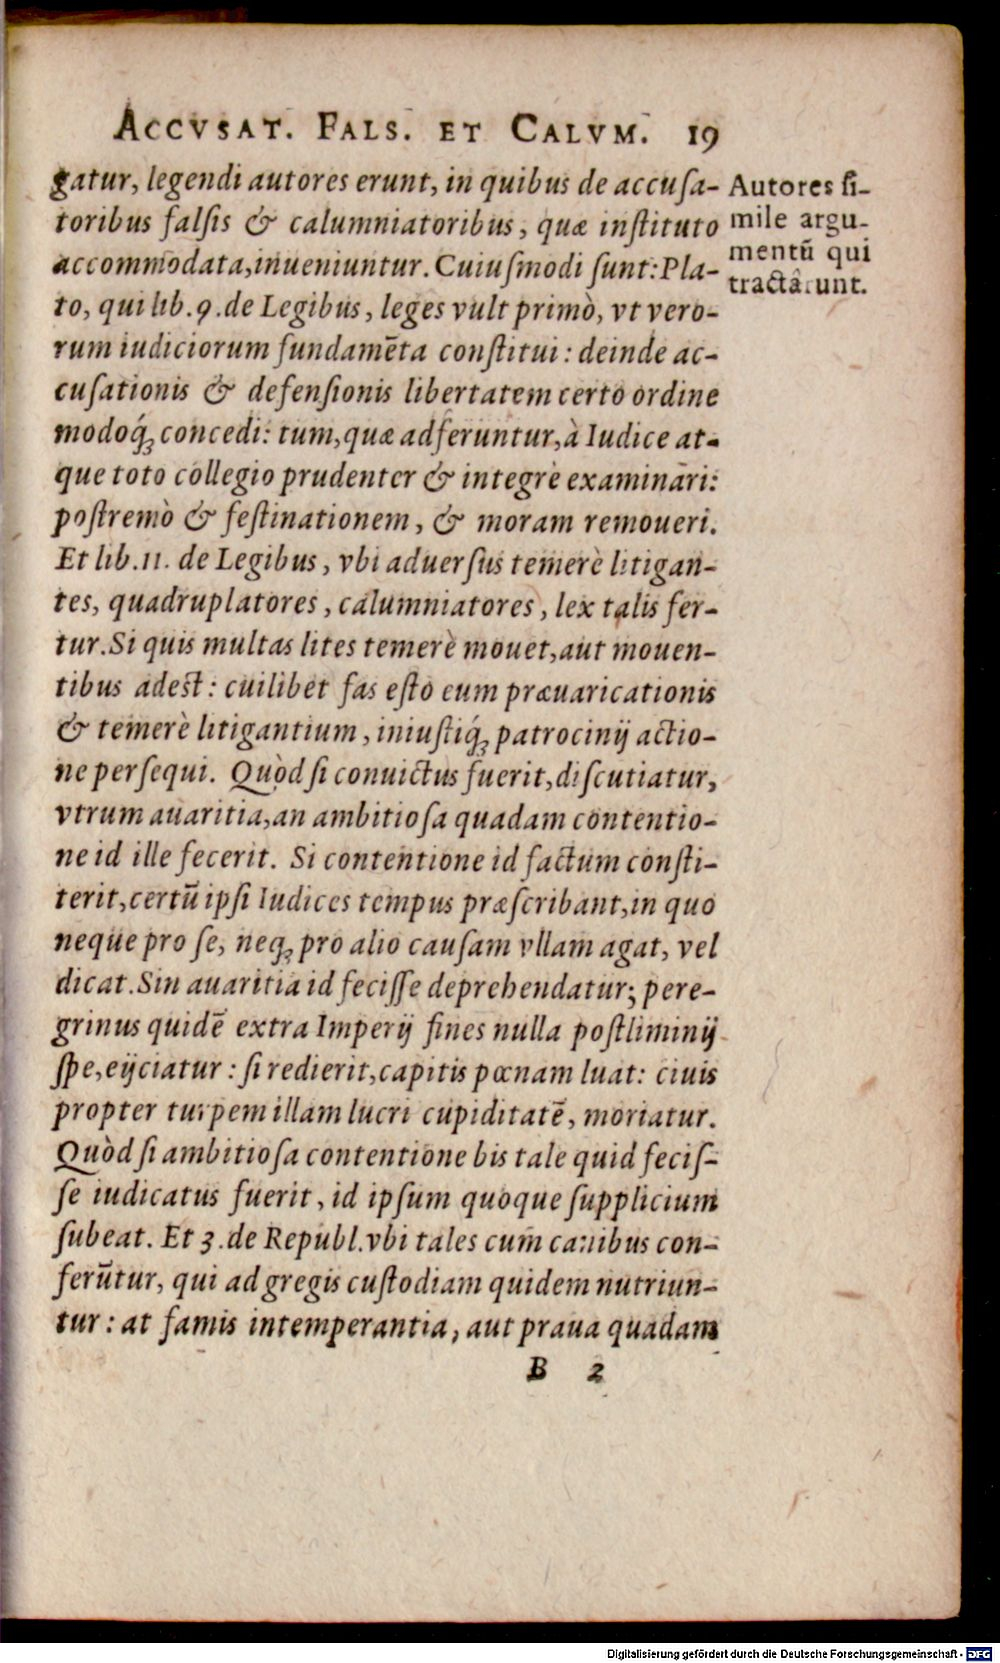 ACCVSAT. FALS. ET CALVM. 19
gatur, legendi autores erunt, in quibus de accuſa-
toribus falſis & calumniatoribus, quæ inſtituto
accommodata, inueniuntur. Cuiuſmodi ſunt: Pla-
to, qui lib. 9. de Legibus, leges vult primò, vt vero-
rum iudiciorum fundamēta conſtitui: deinde ac-
cuſationis & defenſionis libertatem certo ordine
modoq́; concedi: tum, quæ adferuntur, à Iudice at-
que toto collegio prudenter & integrè examinari:
poſtremò & feſtinationem, & moram remoueri.
Et lib. 11. de Legibus, vbi aduerſus temerè litigan-
tes, quadruplatores, calumniatores, lex talis fer-
tur. Si quis multas lites temerè mouet, aut mouen-
tibus adest: cuilibet fas eſto eum præuaricationis
& temerè litigantium, iniuſtiq́; patrocinij actio-
ne perſequi. Quòd ſi conuictus fuerit, diſcutiatur,
vtrum auaritia, an ambitioſa quadam contentio-
ne id ille fecerit. Si contentione id factum conſti-
terit, certū ipſi Iudices tempus præſcribant, in quo
neque pro ſe, neq; pro alio cauſam vllam agat, vel
dicat. Sin auaritia id feciſſe deprehendatur; pere-
grinus quidē extra Imperij fines nulla poſtliminij
ſpe, eijciatur: ſi redierit, capitis pœnam luat: ciuis
propter turpem illam lucri cupiditatē, moriatur.
Quòd ſi ambitioſa contentione bis tale quid feciſ-
ſe iudicatus fuerit, id ipſum quoque ſupplicium
ſubeat. Et 3. de Republ. vbi tales cum canibus con-
ferūtur, qui ad gregis cuſtodiam quidem nutriun-
tur: at famis intemperantia, aut praua quadam
B 2
Autores ſi-
mile argu-
mentū qui
tractârunt.
Digitalisierung gefördert durch die Deutsche Forschungsgemeinschaft - DFG